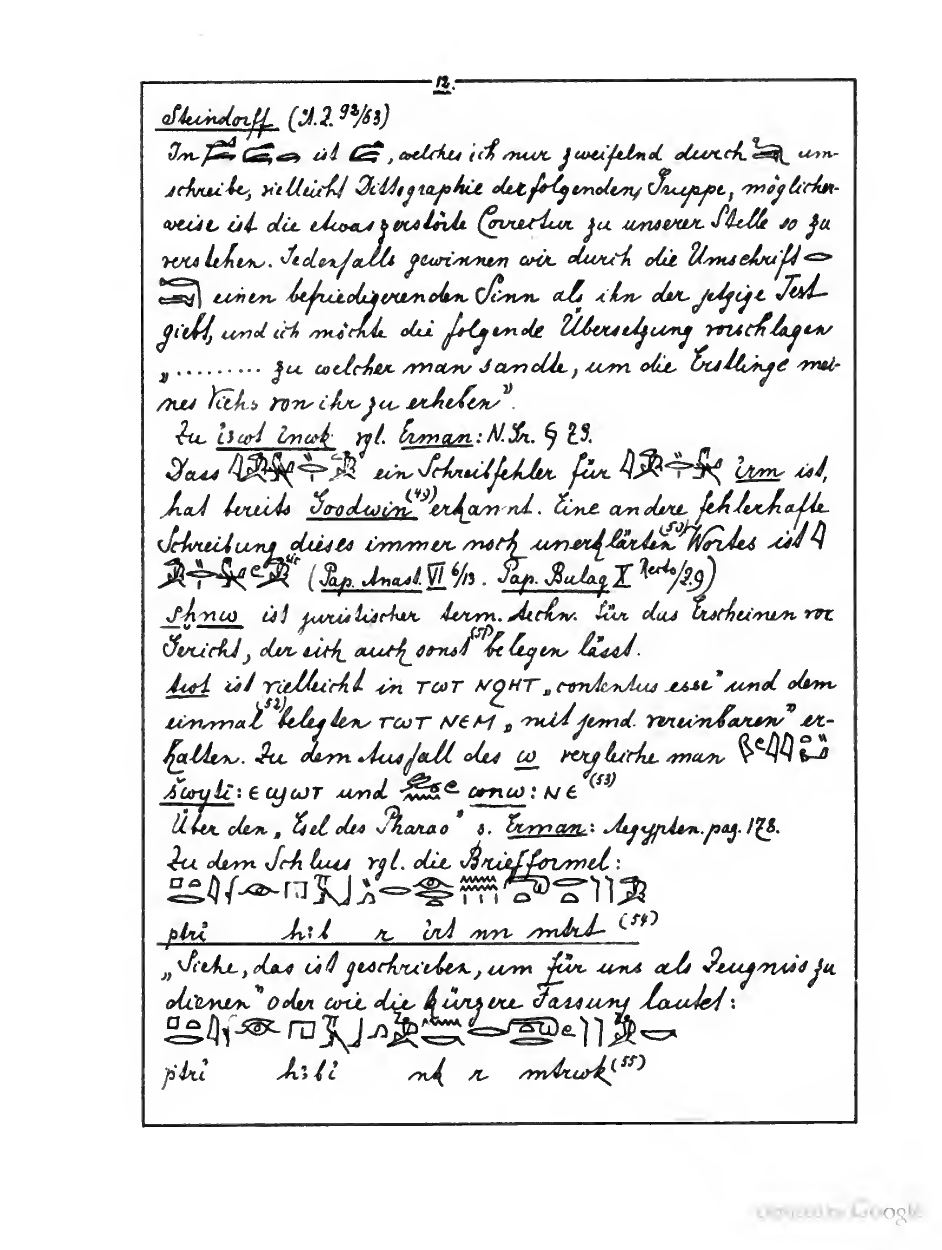 12.
Steindorff (Ä.Z. 92/63)
In ist , welches ich nur zweifelnd durch um-
schreibe, vielleicht Dittographie der folgenden Gruppe, möglicher-
weise ist die etwas zerstörte Correctur zu unserer Stelle so zu
verstehen. Jedenfalls gewinnen wir durch die Umschrift
einen befriedigerenden Sinn als ihn der jetzige Text
giebt, und ich möchte die folgende Übersetzung vorschlagen
„ ......... zu welcher man sandte, um die Erstlinge mei-
nes Viehs von ihr zu erheben".
Zu vgl. Erman: N.Gr. § 29.
Dass ein Schreibfehler für irm ist,
hat bereits Goodwin (49) erkannt. Eine andere fehlerhafte
Schreibung dieses immer noch unerklärten (50) Wortes ist
(Pap. Anast. VI 6/13. Pap. Bulaq X Recto/2.9)
shnw ist juristischer term. techn. für das Erscheinen vor
Gericht, der sich auch sonst (51) belegen lässt.
twt ist vielleicht in ⲧⲱⲧ ⲛϩⲏⲧ „contentus esse" und dem
einmal (52) belegten ⲧⲱⲧ ⲛⲉⲙ „mit jemd. vereinbaren" er-
halten. Zu dem Ausfall des w vergleiche man
šwyti: ⲉϣⲱⲧ und wnw: ⲛⲉ (53)
Über den „Esel des Pharao" s. Erman: Aegypten. pag. 178.
Zu dem Schluss vgl. die Briefformel:
ptri hꜣb r irt nn mtrt (54)
„Siehe, das ist geschrieben, um für uns als Zeugniss zu
dienen" oder wie die kürzere Fassung lautet:
ptri hꜣbi nk r mtrwk (55)
Digitized by Google